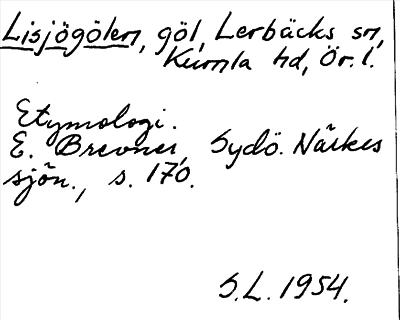 Lisjögölen, göl, Lerbäcks sn,
Kumla hd, Ör. l.
Etymologi.
E. Brevner, Sydö. Närkes
sjön., s. 170.
S.L. 1954.